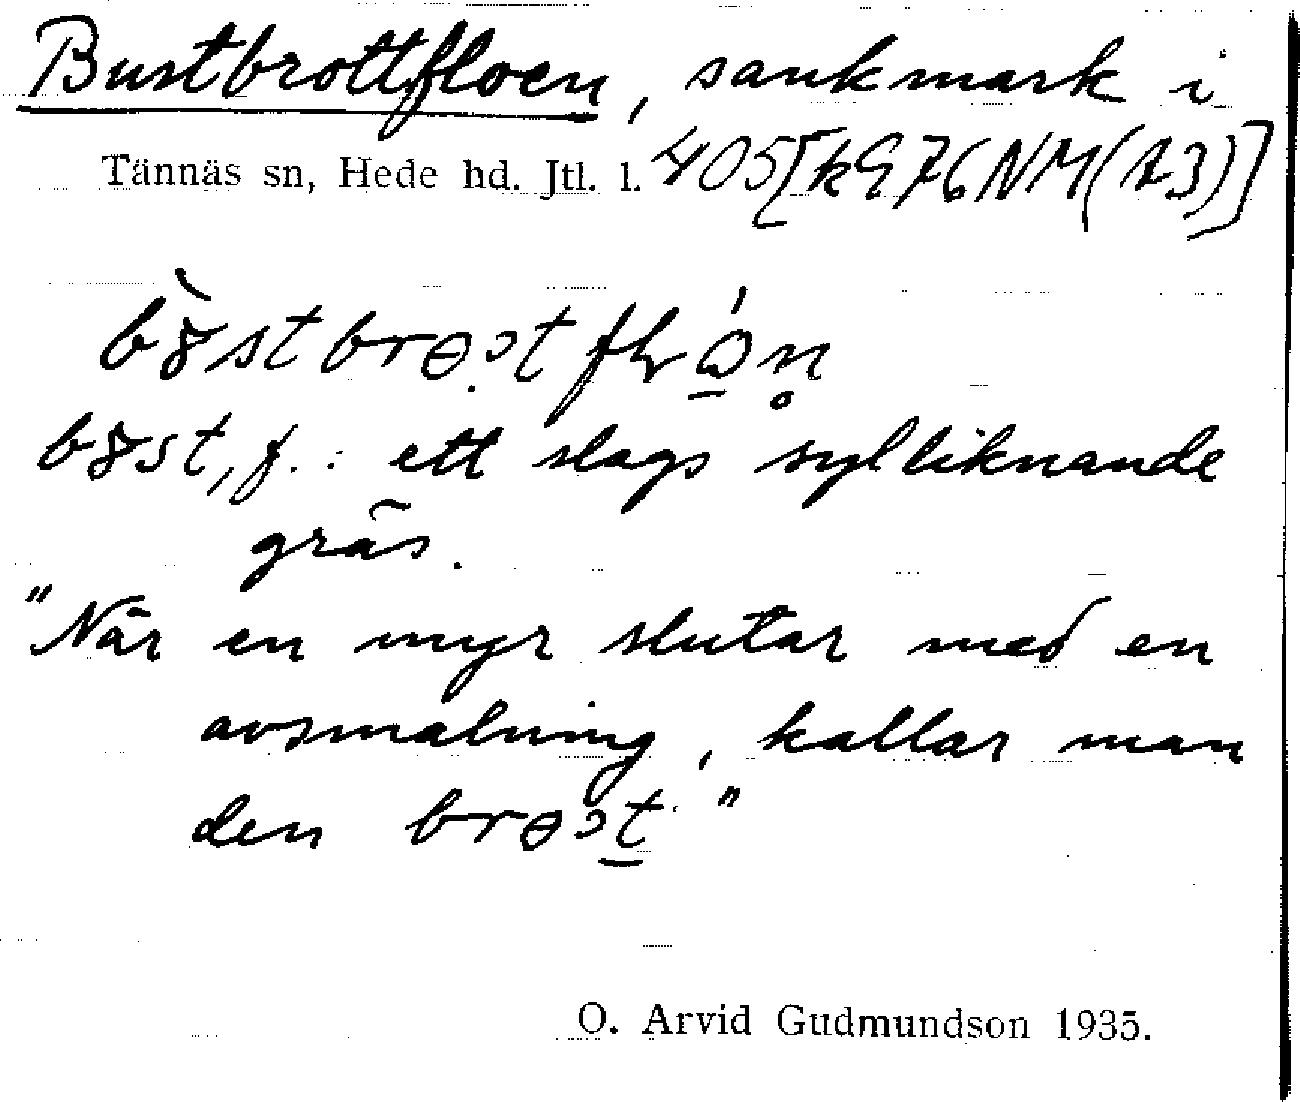 Bustbrottfloen, sankmark i
Tännäs sn, Hede hd. Jtl. l. 405 [k976NM(13)]
ett slags sylliknande
gräs.
"När en myr slutar med en
avsmalning, kallar man
den "
O. Arvid Gudmundson 1935.